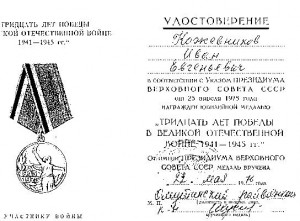 ТРИДЦАТЬ ЛЕТ ПОБЕДЫ
КОЙ ОТЕЧЕСТВЕННОЙ ВОЙНЕ
1941—1945 гг."
УЧАСТНИКУ ВОЙНЫ
УДОСТОВЕРЕНИЕ
Кожевников
Иван
Евгеньевич
в соответствии с Указом ПРЕЗИДИУМА
ВЕРХОВНОГО СОВЕТА СССР
от 25 апреля 1975 года
НАГРАЖДЕН ЮБИЛЕЙНОЙ МЕДАЛЬЮ
„ТРИДЦАТЬ ЛЕТ ПОБЕДЫ
В ВЕЛИКОЙ ОТЕЧЕСТВЕННОЙ
ВОЙНЕ 1941—1945 гг."
ПРЕЗИДИУМА ВЕРХОВНОГО
СОВЕТА СССР МЕДАЛЬ ВРУЧЕНА
мая